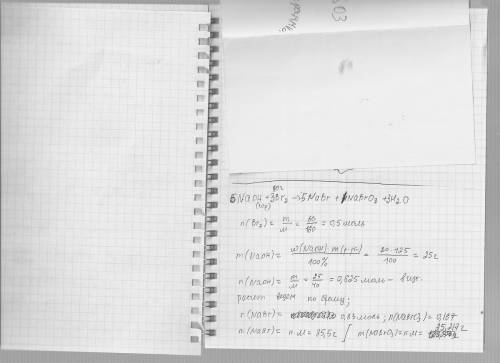 ОЗ
6NaOH + 3Br₂ → 5NaBr + NaBrO₃ + 3H₂O
n(Br₂) = m/M = 80/160 = 0,5 моль
m(NaOH) = ω(NaOH)·m(р-ра)/100% = 20·125/100 = 25г
n(NaOH) = m/M = 25/40 = 0,625 моль –
расчет ведем по брому;
n(NaBr) = 0,83 моль; n(NaBrO₃) = 0,167
m(NaBr) = n·M = 85,5г m(NaBrO₃) = n·M = 25,217г